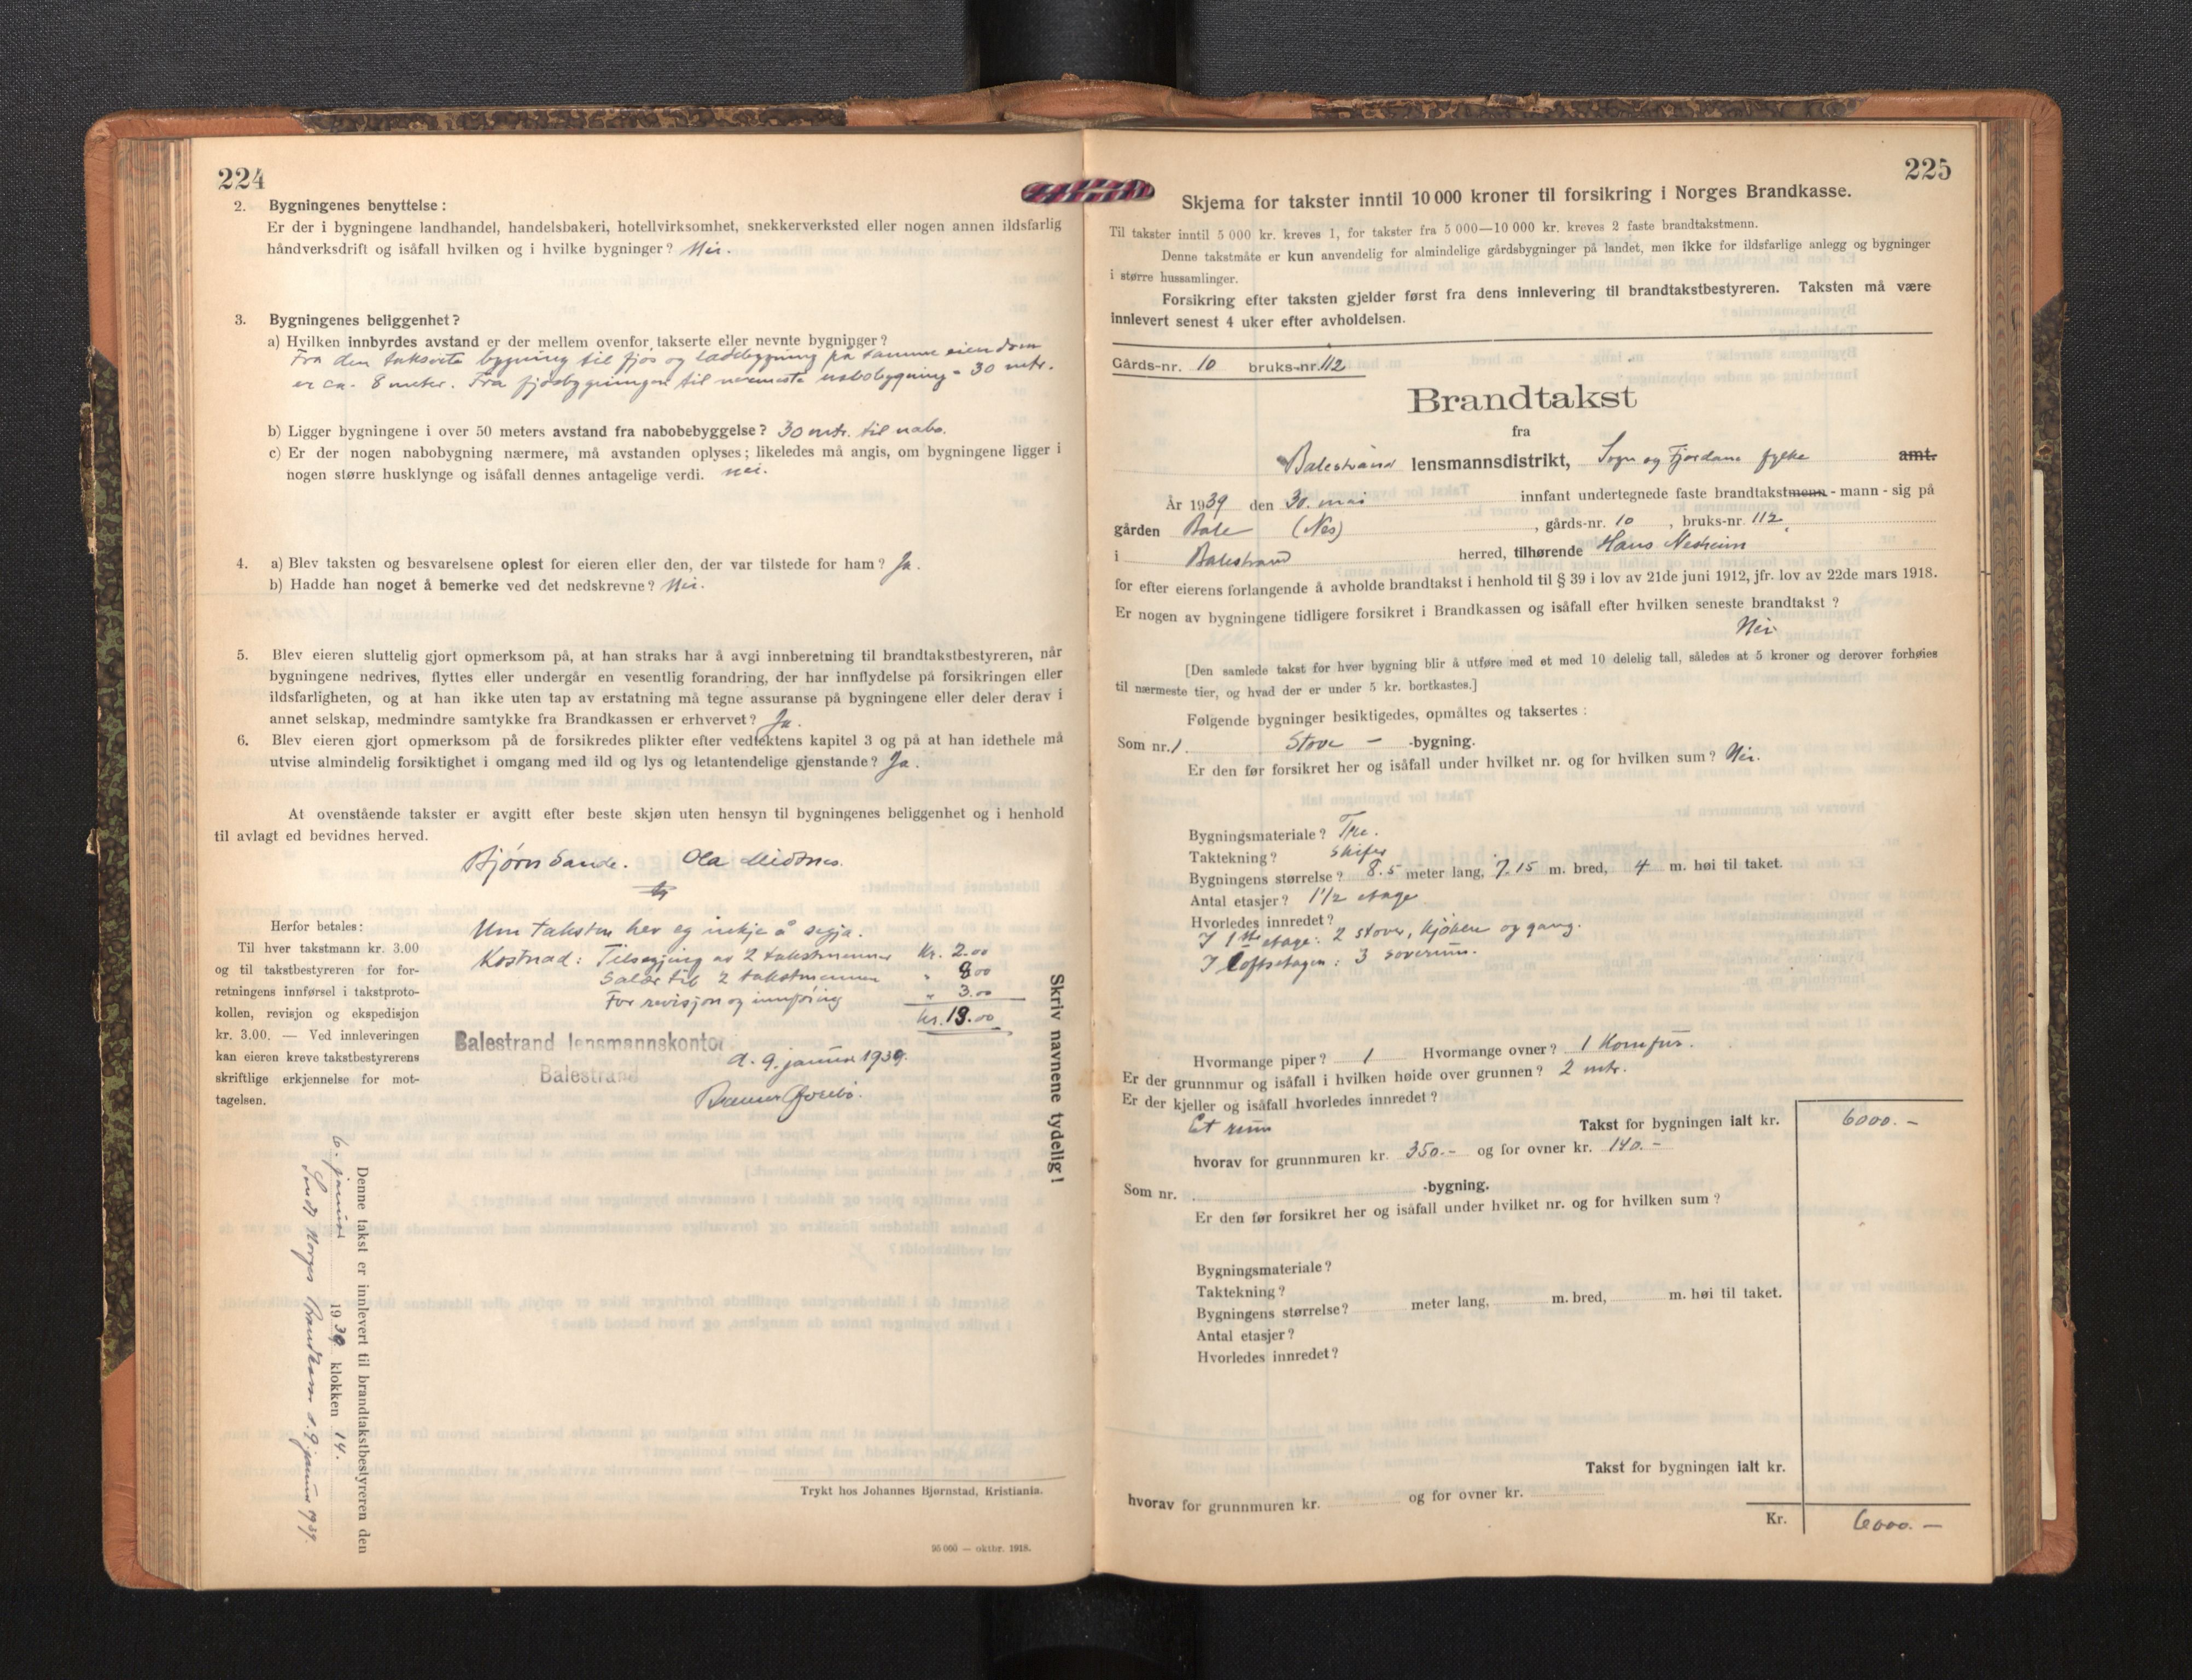 224
2. Bygningenes benyttelse:
Er der i bygningene landhandel, handelsbakeri, hotellvirksomhet, snekkerverksted eller nogen annen ildsfarlig
håndverksdrift og isåfall hvilken og i hvilke bygninger? Nei.
3. Bygningenes beliggenhet?
a) Hvilken innbyrdes avstand er der mellem ovenfor takserte eller nevnte bygninger?
Fra den takserte bygning til fjøs og ladebygning på samme eiendom
er ca. 8 meter. Fra fjøsbygningen til nermeste nabobygning = 30 mtr.
b) Ligger bygningene i over 50 meters avstand fra nabobebyggelse? 30 mtr. til nabo.
c) Er der nogen nabobygning nærmere, må avstanden oplyses; likeledes må angis, om bygningene ligger i
nogen større husklynge og isåfall dennes antagelige verdi. nei.
4. a) Blev taksten og besvarelsene oplest for eieren eller den, der var tilstede for ham? Ja.
b) Hadde han noget å bemerke ved det nedskrevne? Nei.
5. Blev eieren sluttelig gjort opmerksom på, at han straks har å avgi innberetning til brandtakstbestyreren, når
bygningene nedrives, flyttes eller undergår en vesentlig forandring, der har innflydelse på forsikringen eller
ildsfarligheten, og at han ikke uten tap av erstatning må tegne assuranse på bygningene eller deler derav i
annet selskap, medmindre samtykke fra Brandkassen er erhvervet? Ja.
6. Blev eieren gjort opmerksom på de forsikredes plikter efter vedtektens kapitel 3 og på at han idethele må
utvise almindelig forsiktighet i omgang med ild og lys og letantendelige gjenstande? Ja.
At ovenstående takster er avgitt efter beste skjøn uten hensyn til bygningenes beliggenhet og i henhold
til avlagt ed bevidnes herved.
Bjørn Sande. Ola Midtnes.
Herfor betales:
Til hver takstmann kr. 3.00
og til takstbestyreren for for-
retningens innførsel i takstproto-
kollen, revisjon og ekspedisjon
kr. 3.00. — Ved innleveringen
kan eieren kreve takstbestyrerens
skriftlige erkjennelse for mot-
tagelsen.
Um taksten hev eg inkje å segja.
Kostnad: Tilsegjing av 2 takstmenner Kr. 2.00
Salær til 2 takstmennen " 8.00
For revisjon og innføring " 3.00
Kr. 13.00
Balestrand lensmannskontor
Balestrand
d. 9. januar 1939.
Skriv navnene tydelig!
Denne takst er innlevert til brandtakstbestyreren den
6. januar 1939 klokken 14.
Sendt Norges Brandkasse d. 9. januar 1939.
Trykt hos Johannes Bjørnstad, Kristiania.
95 000 — oktbr. 1918.
225
Skjema for takster inntil 10 000 kroner til forsikring i Norges Brandkasse.
Til takster inntil 5 000 kr. kreves 1, for takster fra 5 000—10 000 kr. kreves 2 faste brandtakstmenn.
Denne takstmåte er kun anvendelig for almindelige gårdsbygninger på landet, men ikke for ildsfarlige anlegg og bygninger
i større hussamlinger.
Forsikring efter taksten gjelder først fra dens innlevering til brandtakstbestyreren. Taksten må være
innlevert senest 4 uker efter avholdelsen.
Gårds-nr. 10 bruks-nr. 112
Brandtakst
fra
Balestrand lensmannsdistrikt, Sogn og Fjordane fylke amt.
År 1939 den 30. mai innfant undertegnede faste brandtakstmenn - mann - sig på
gården Bale (Nes), gårds-nr. 10, bruks-nr. 112,
i Balestrand herred, tilhørende Hans Nesheim
for efter eierens forlangende å avholde brandtakst i henhold til § 39 i lov av 21de juni 1912, jfr. lov av 22de mars 1918.
Er nogen av bygningene tidligere forsikret i Brandkassen og isåfall efter hvilken seneste brandtakst?
Nei.
[Den samlede takst for hver bygning blir å utføre med et med 10 delelig tall, således at 5 kroner og derover forhøies
til nærmeste tier, og hvad der er under 5 kr. bortkastes.]
Følgende bygninger besiktigedes, opmåltes og taksertes:
Som nr. 1. Stove - -bygning.
Er den før forsikret her og isåfall under hvilket nr. og for hvilken sum? Nei.
Bygningsmateriale? Tre.
Taktekning? Skifer
Bygningens størrelse? 8.5 meter lang, 7.15 m. bred, 4 m. høi til taket.
Antal etasjer? 1 1/2 etage
Hvorledes innredet?
I 1ste etage: 2 stover, kjøken og gang.
I loftsetagen: 3 soverum.
Hvormange piper? 1 Hvormange ovner? 1 Komfur.
Er der grunnmur og isåfall i hvilken høide over grunnen? 2 mtr.
Er der kjeller og isåfall hvorledes innredet?
Et rum
Takst for bygningen ialt kr. 6000.-
hvorav for grunnmuren kr. 350.- og for ovner kr. 140.-
Som nr. -bygning.
Er den før forsikret her og isåfall under hvilket nr. og for hvilken sum?
Bygningsmateriale?
Taktekning?
Bygningens størrelse? meter lang, m. bred, m. høi til taket.
Antal etasjer?
Hvorledes innredet?
Takst for bygningen ialt kr.
hvorav for grunnmuren kr. og for ovner kr.
Kr. 6000.-